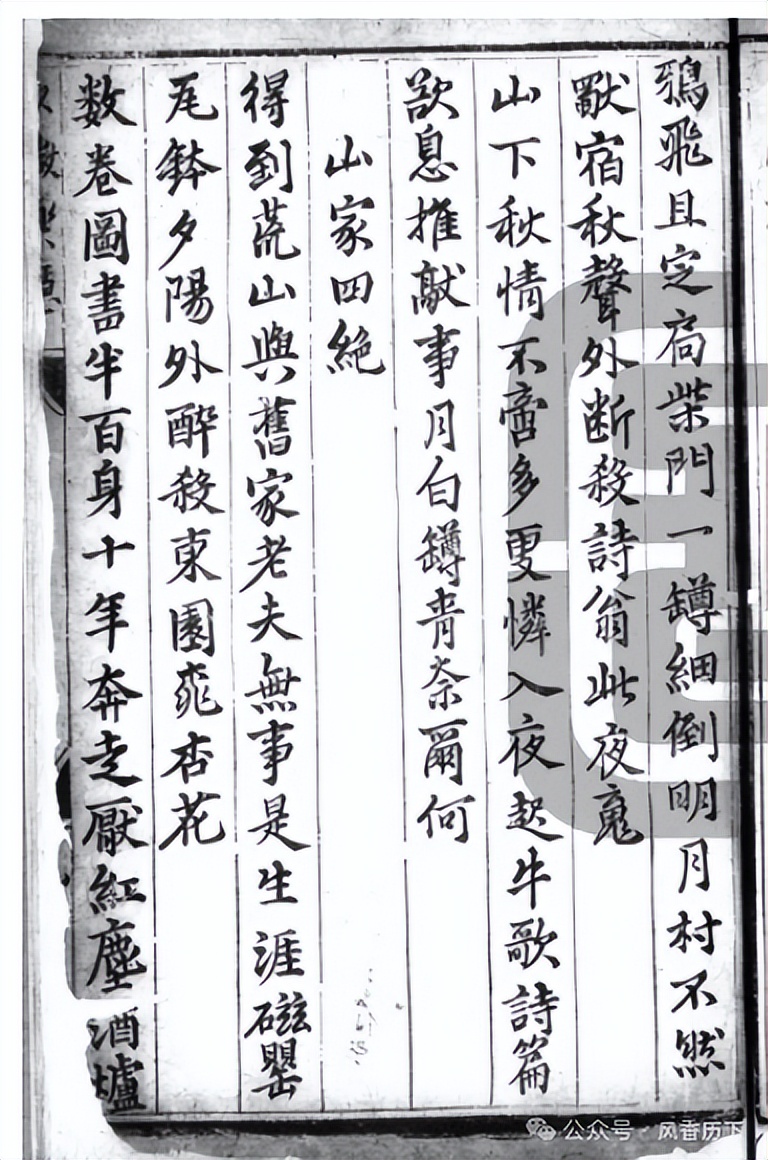 鴉飛且定扃柴門一罇細倒明月村不然
獸宿秋聲外断殺詩翁此夜䰟
山下秋情不啻多更憐入夜起牛歌詩篇
欲息推敲事月白罇青奈爾何
山家四絶
得到荒山與舊家老夫無事是生涯磁罌
瓦鉢夕陽外醉殺東園桃杏花
数卷圖書半百身十年奔走厭紅塵酒壚
公众号·风香历下